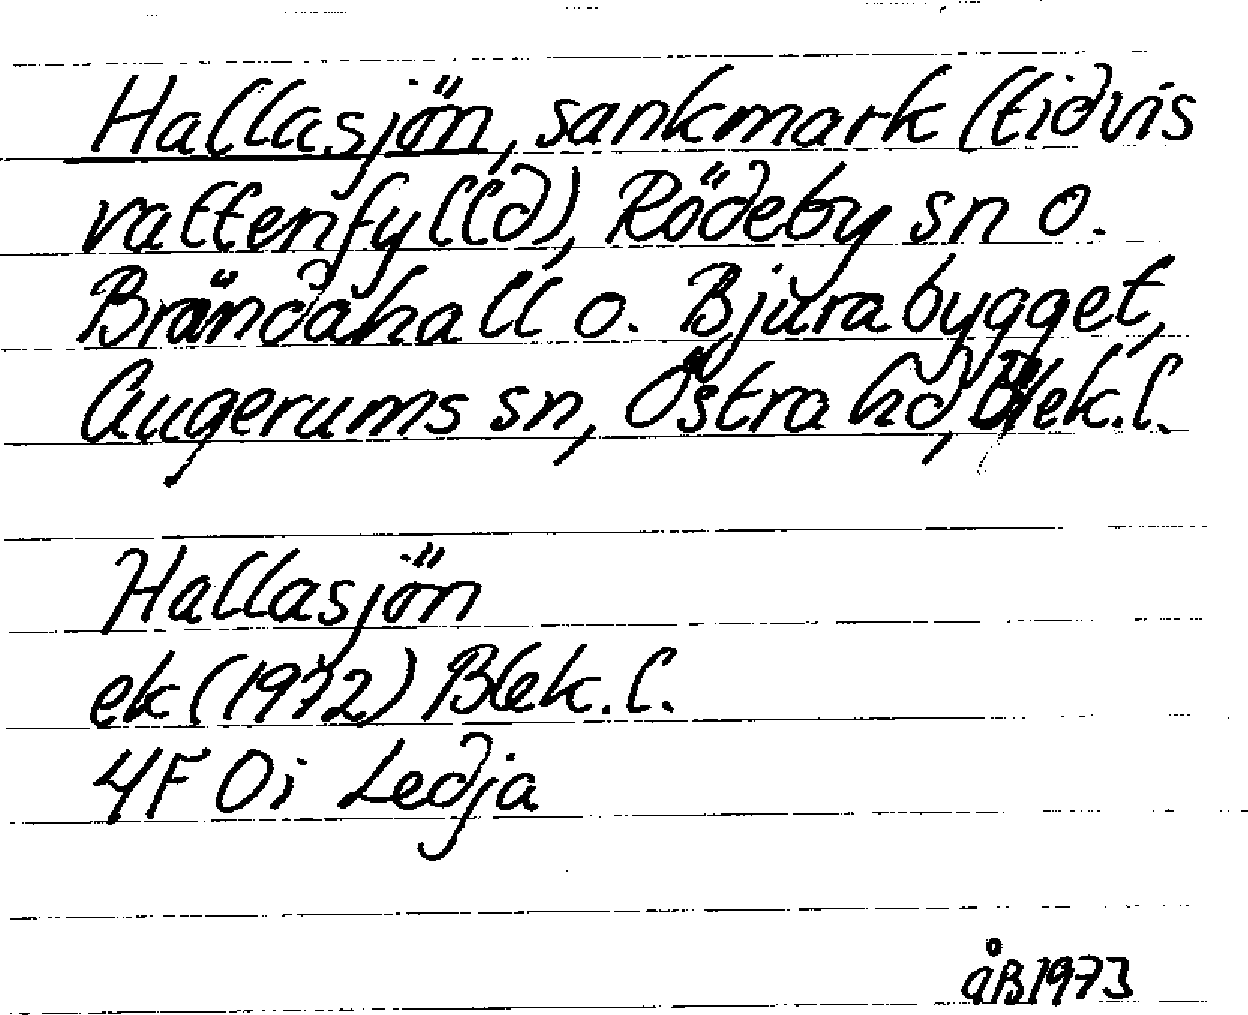 Hallasjön, sankmark (tidvis
vattenfylld), Rödeby sn o.
Brändahall o. Bjurabygget,
Augerums sn, Östra hd, Blek. l.
Hallasjön
ek (1972) Blek. l.
4F 0i Ledja
åB 1973